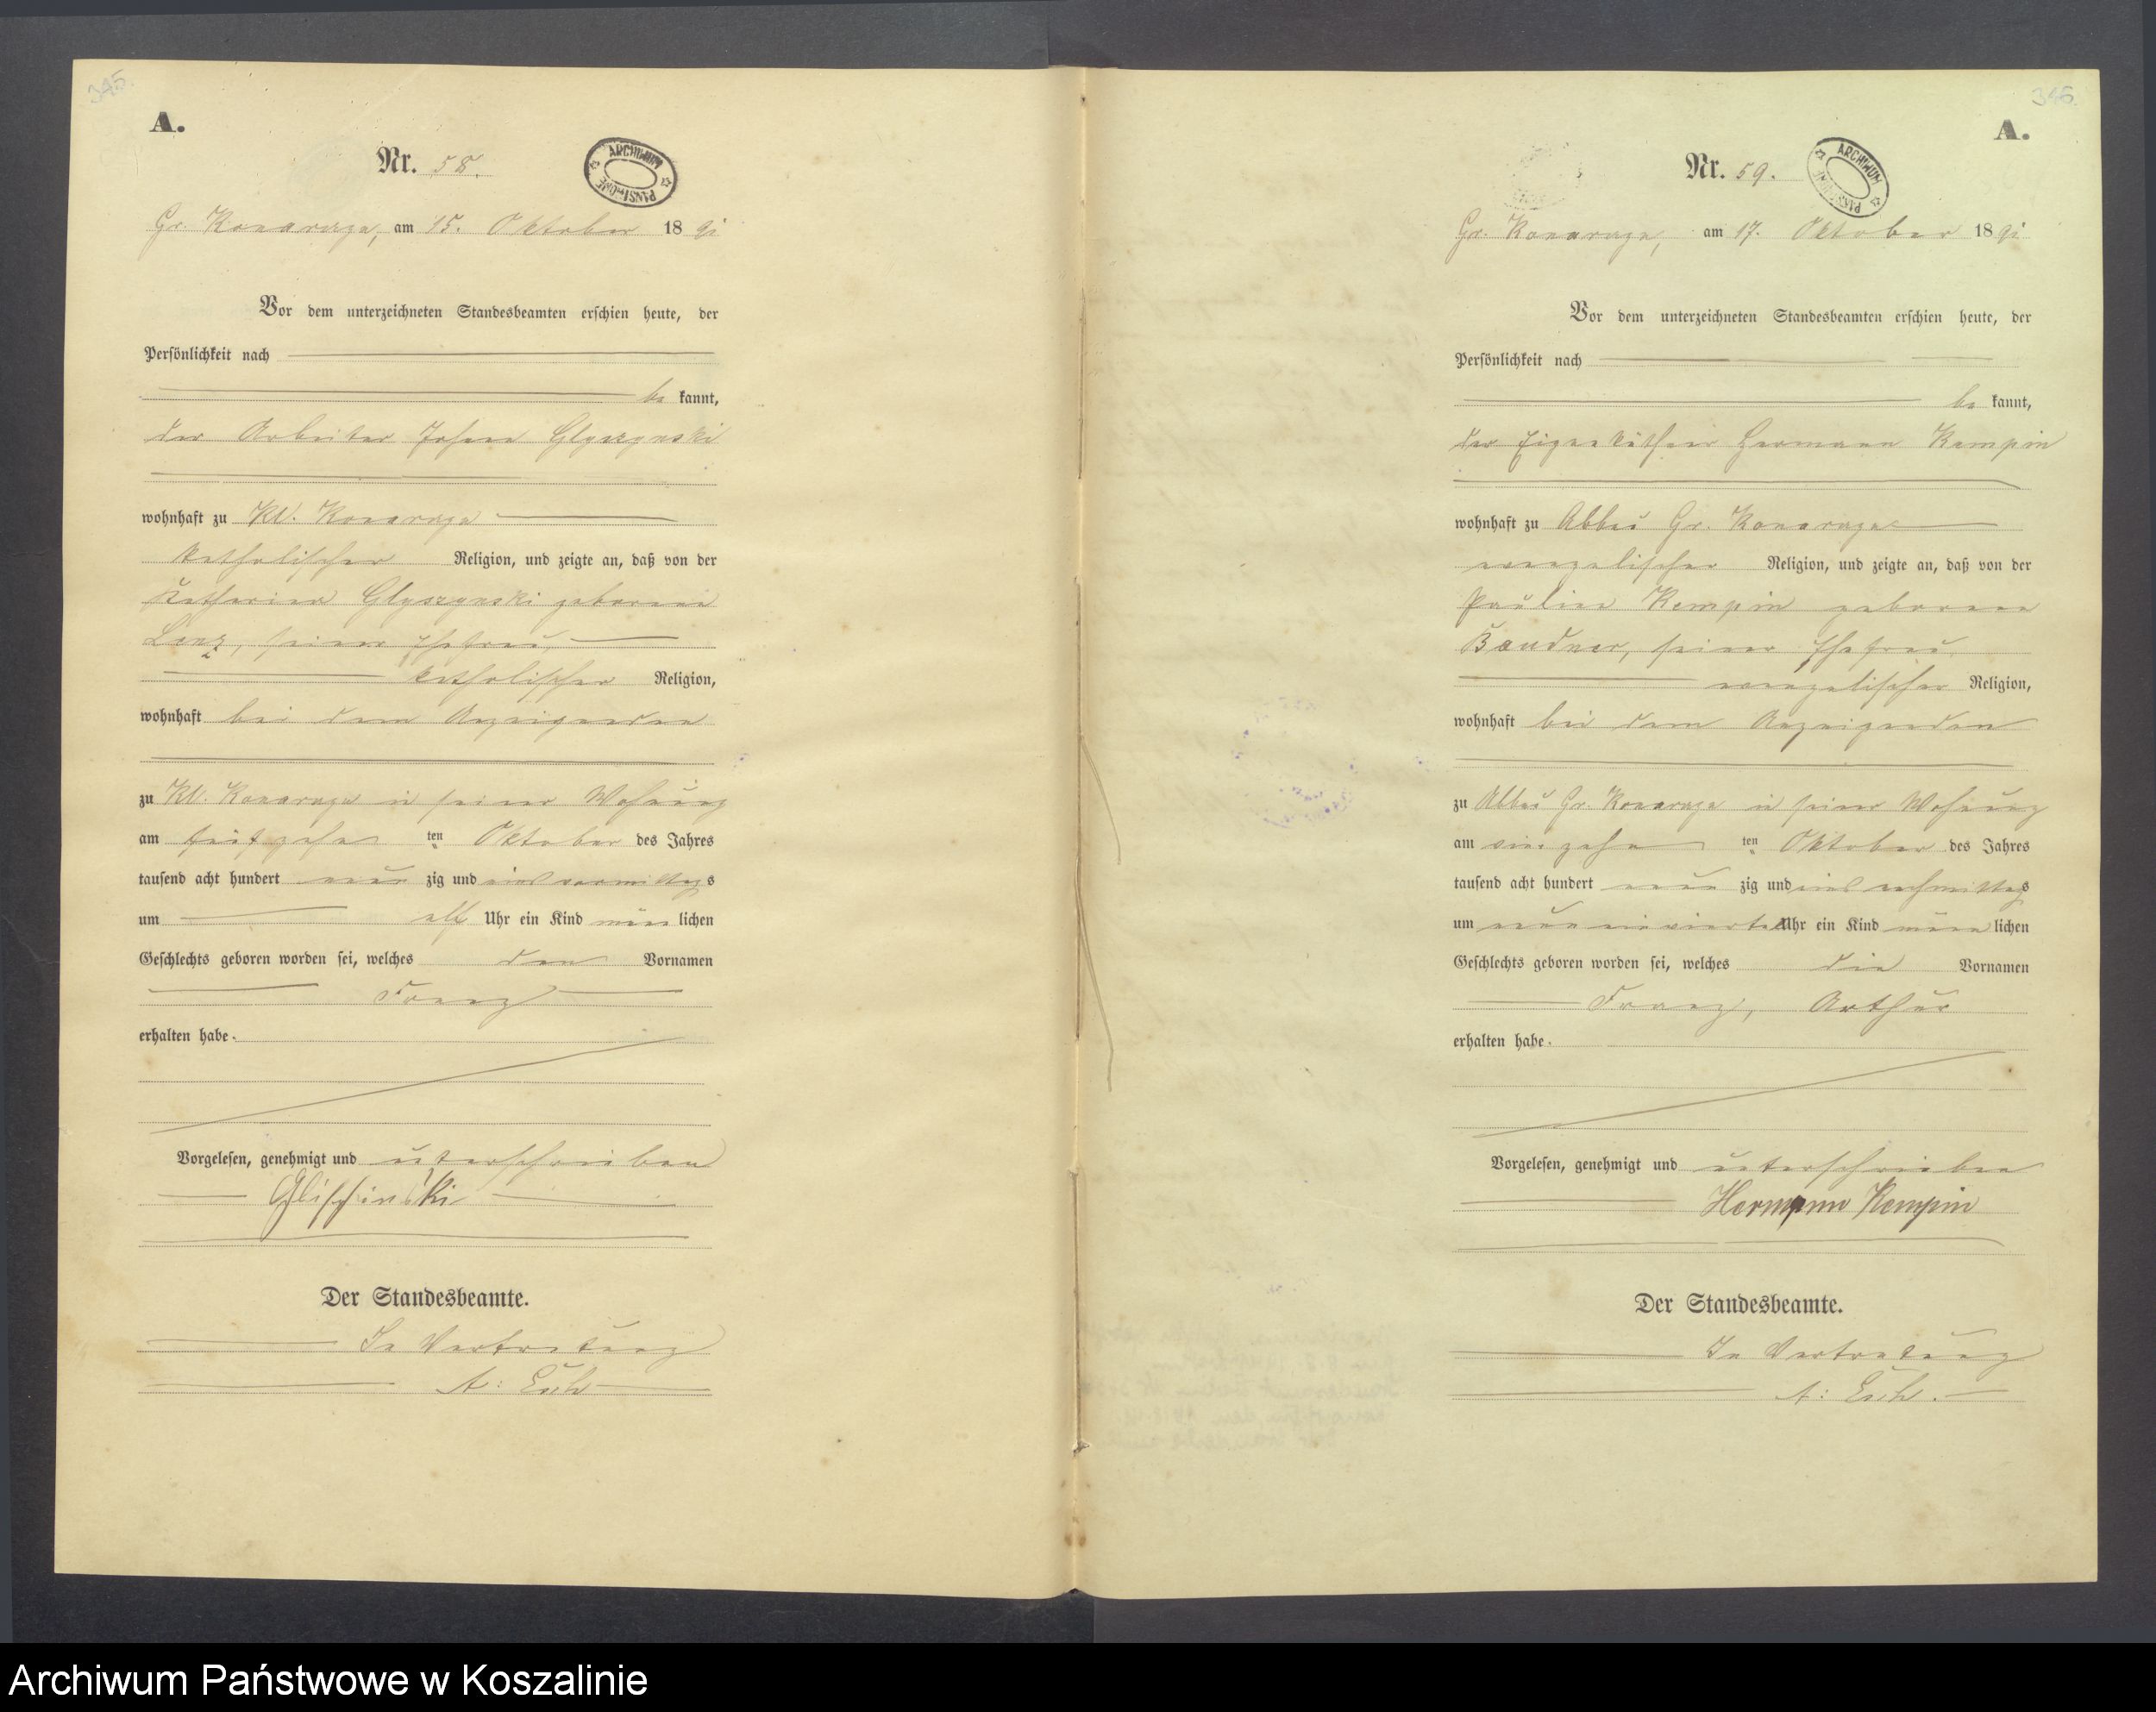 345.
A.
Nr. 58.
ARCHIWUM PAŃSTWOWE
Gr. Konarczyn, am 15. Oktober 1891
Vor dem unterzeichneten Standesbeamten erschien heute, der
Persönlichkeit nach
be kannt,
der Arbeiter Johann Glyszynski
wohnhaft zu Kl. Konarczyn
katholischer Religion, und zeigte an, daß von der
Katharina Glyszynski geborene
Lenz, seiner Ehefrau,
katholischer Religion,
wohnhaft bei dem Anzeigenden
zu Kl. Konarczyn in seiner Wohnung
am fünfzehn ten Oktober des Jahres
tausend acht hundert neun zig und eins vormittags
um elf Uhr ein Kind männ lichen
Geschlechts geboren worden sei, welches den Vornamen
Franz
erhalten habe.
Vorgelesen, genehmigt und unterschrieben
Glischinski
Der Standesbeamte.
In Vertretung
A:
346.
A.
Nr. 59.
ARCHIWUM PAŃSTWOWE
Gr. Konarczyn, am 17. Oktober 1891
Vor dem unterzeichneten Standesbeamten erschien heute, der
Persönlichkeit nach
be kannt,
der Eigenkäthner Hermann Kempin
wohnhaft zu Abbau Gr. Konarczyn
evangelischer Religion, und zeigte an, daß von der
Pauline Kempin geborene
Bandner, seiner Ehefrau
evangelischer Religion,
wohnhaft bei dem Anzeigenden
zu Abbau Gr. Konarczyn in seiner Wohnung
am vierzehn ten Oktober des Jahres
tausend acht hundert neun zig und eins nachmittags
um neun ein viertel Uhr ein Kind männ lichen
Geschlechts geboren worden sei, welches die Vornamen
Franz, Arthur
erhalten habe.
Vorgelesen, genehmigt und unterschrieben
Hermann Kempin
Der Standesbeamte.
In Vertretung
A:
Archiwum Państwowe w Koszalinie